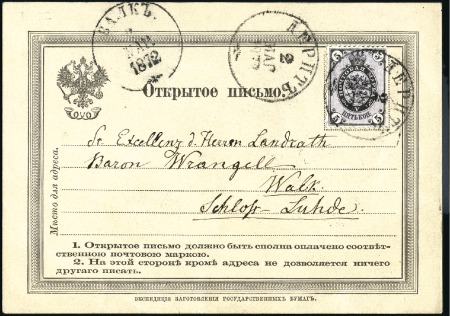 ВАЛКЪ.
1872
ДЕРПТЪ
2
5 5
ПЯТЬ КОП.
5 5
ДЕРПТЪ
Открытое письмо.
Мѣсто для адреса.
Sr Excellenz d. Herrn Landrath
Baron Wrangell
Walk.
Schloss-Luhde.
1. Открытое письмо должно быть сполна оплачено соотвѣт-
ственною почтовою маркою.
2. На этой сторонѣ кромѣ адреса не дозволяется ничего
другаго писать.
ЭКСПЕДИЦІЯ ЗАГОТОВЛЕНІЯ ГОСУДАРСТВЕННЫХЪ БУМАГЪ.